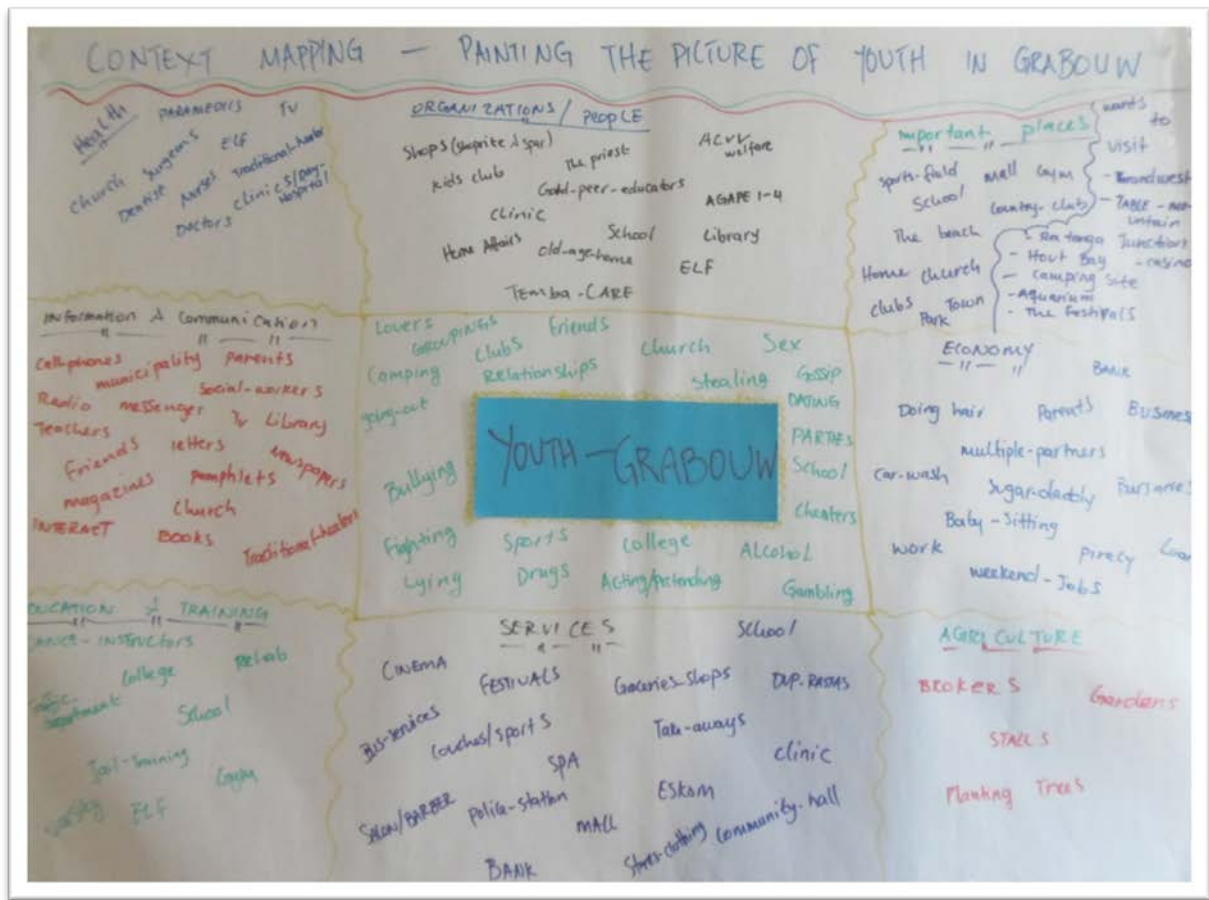 CONTEXT MAPPING — PAINTING THE PICTURE OF YOUTH IN GRABOUW
Health
PARAMEDICS TV
Surgeons ELF
Church Dentist Nurses Traditional-healer
Doctors Clinics/Day-Hospital
ORGANIZATIONS/ PEOPLE
Shops (shoprite & spar) The priest ACVV welfare
Kids club Gold-peer-educators AGAPE 1-4
Clinic School Library
Home Affairs old-age-home ELF
Temba-CARE
important places
sports-field mall Gym
School Country-club
The beach
Home church
Clubs Town
Park
wants
to
visit
- Grandwest
- TABLE-mountain
- Ratanga Junction
- Hout Bay - casino
- Camping site
- Aquarium
- The Festivals
Information & Communication
Cellphones municipality Parents
Social-workers
Radio messenger Tv Library
Teachers letters Newspapers
Friends Pamphlets
magazines Church
INTERACT BOOKS Traditional-healers
Lovers GROUPINGS Friends
Clubs Church Sex
Camping Relationships Stealing Gossip
going-out DATING
PARTIES
Bullying School
Cheaters
YOUTH-GRABOUW
Fighting Sports College ALCOHOL
Lying Drugs Acting/Pretending Gambling
ECONOMY
BANK
Doing hair Parents Busines
multiple-partners
Car-wash Sugar-daddy Bursaries
Baby-Sitting
work Piracy Loan
weekend-Jobs
EDUCATION & TRAINING
DANCE-INSTRUCTORS
College Rehab
School
Jail-training
Gym
ELF
SERVICES
School
CINEMA FESTIVALS Groceries-Shops DUP-RASTAS
Bus-services Coaches/sports Take-aways
SPA Clinic
SALON/BARBER Police-station ESKOM
MALL Stores-clothing Community-hall
BANK
AGRICULTURE
BROKERS Gardens
STALLS
Planking Trees